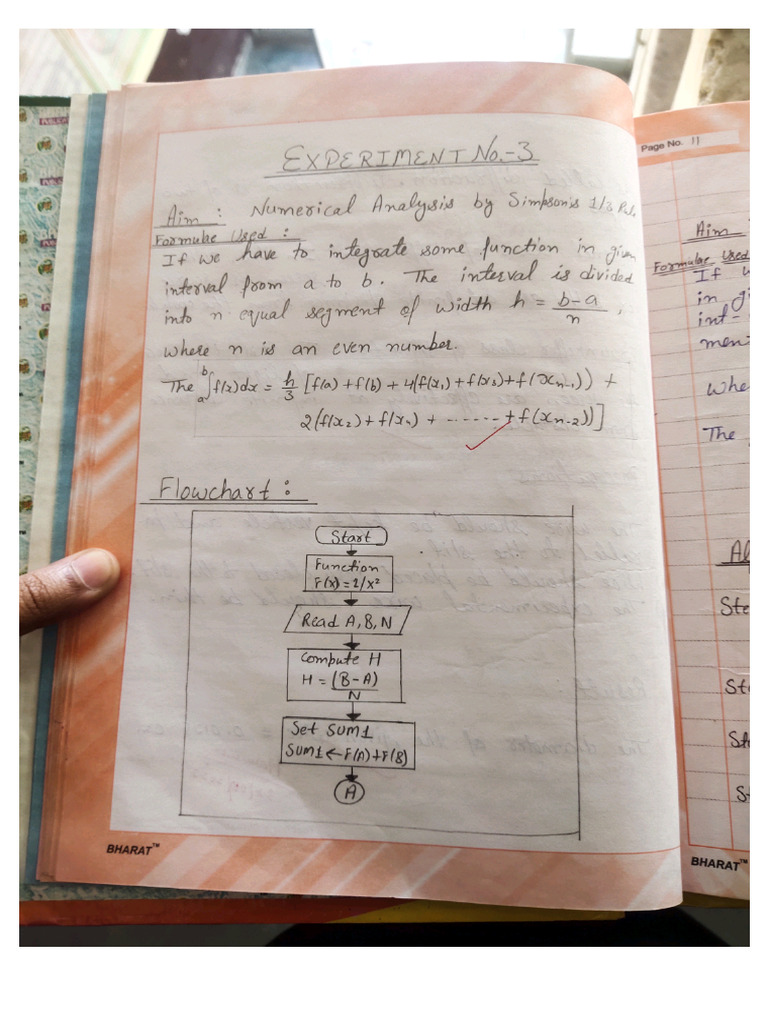 EXPERIMENT No.-3
Aim : Numerical Analysis by Simpson's 1/3 Rule
Formulae Used :
If we have to integrate some function in given
interval from a to b. The interval is divided
into n equal segment of width h = b-a/n ,
where n is an even number.
The ∫ₐᵇ f(x)dx = h/3 [f(a) + f(b) + 4(f(x₁) + f(x₃) + f(xₙ₋₁)) +
2(f(x₂) + f(x₄) + ....... + f(xₙ₋₂))]
Flowchart :
Start
Function
F(X) = 2/X²
Read A, B, N
Compute H
H = (B-A)/N
Set SUM1
SUM1 ← F(A)+F(B)
A
BHARAT™
Page No. 11
Aim
Formulae Used
If
in gi
int-
men
Whe
The
Al
Ste
Ste
Ste
S
BHARAT™